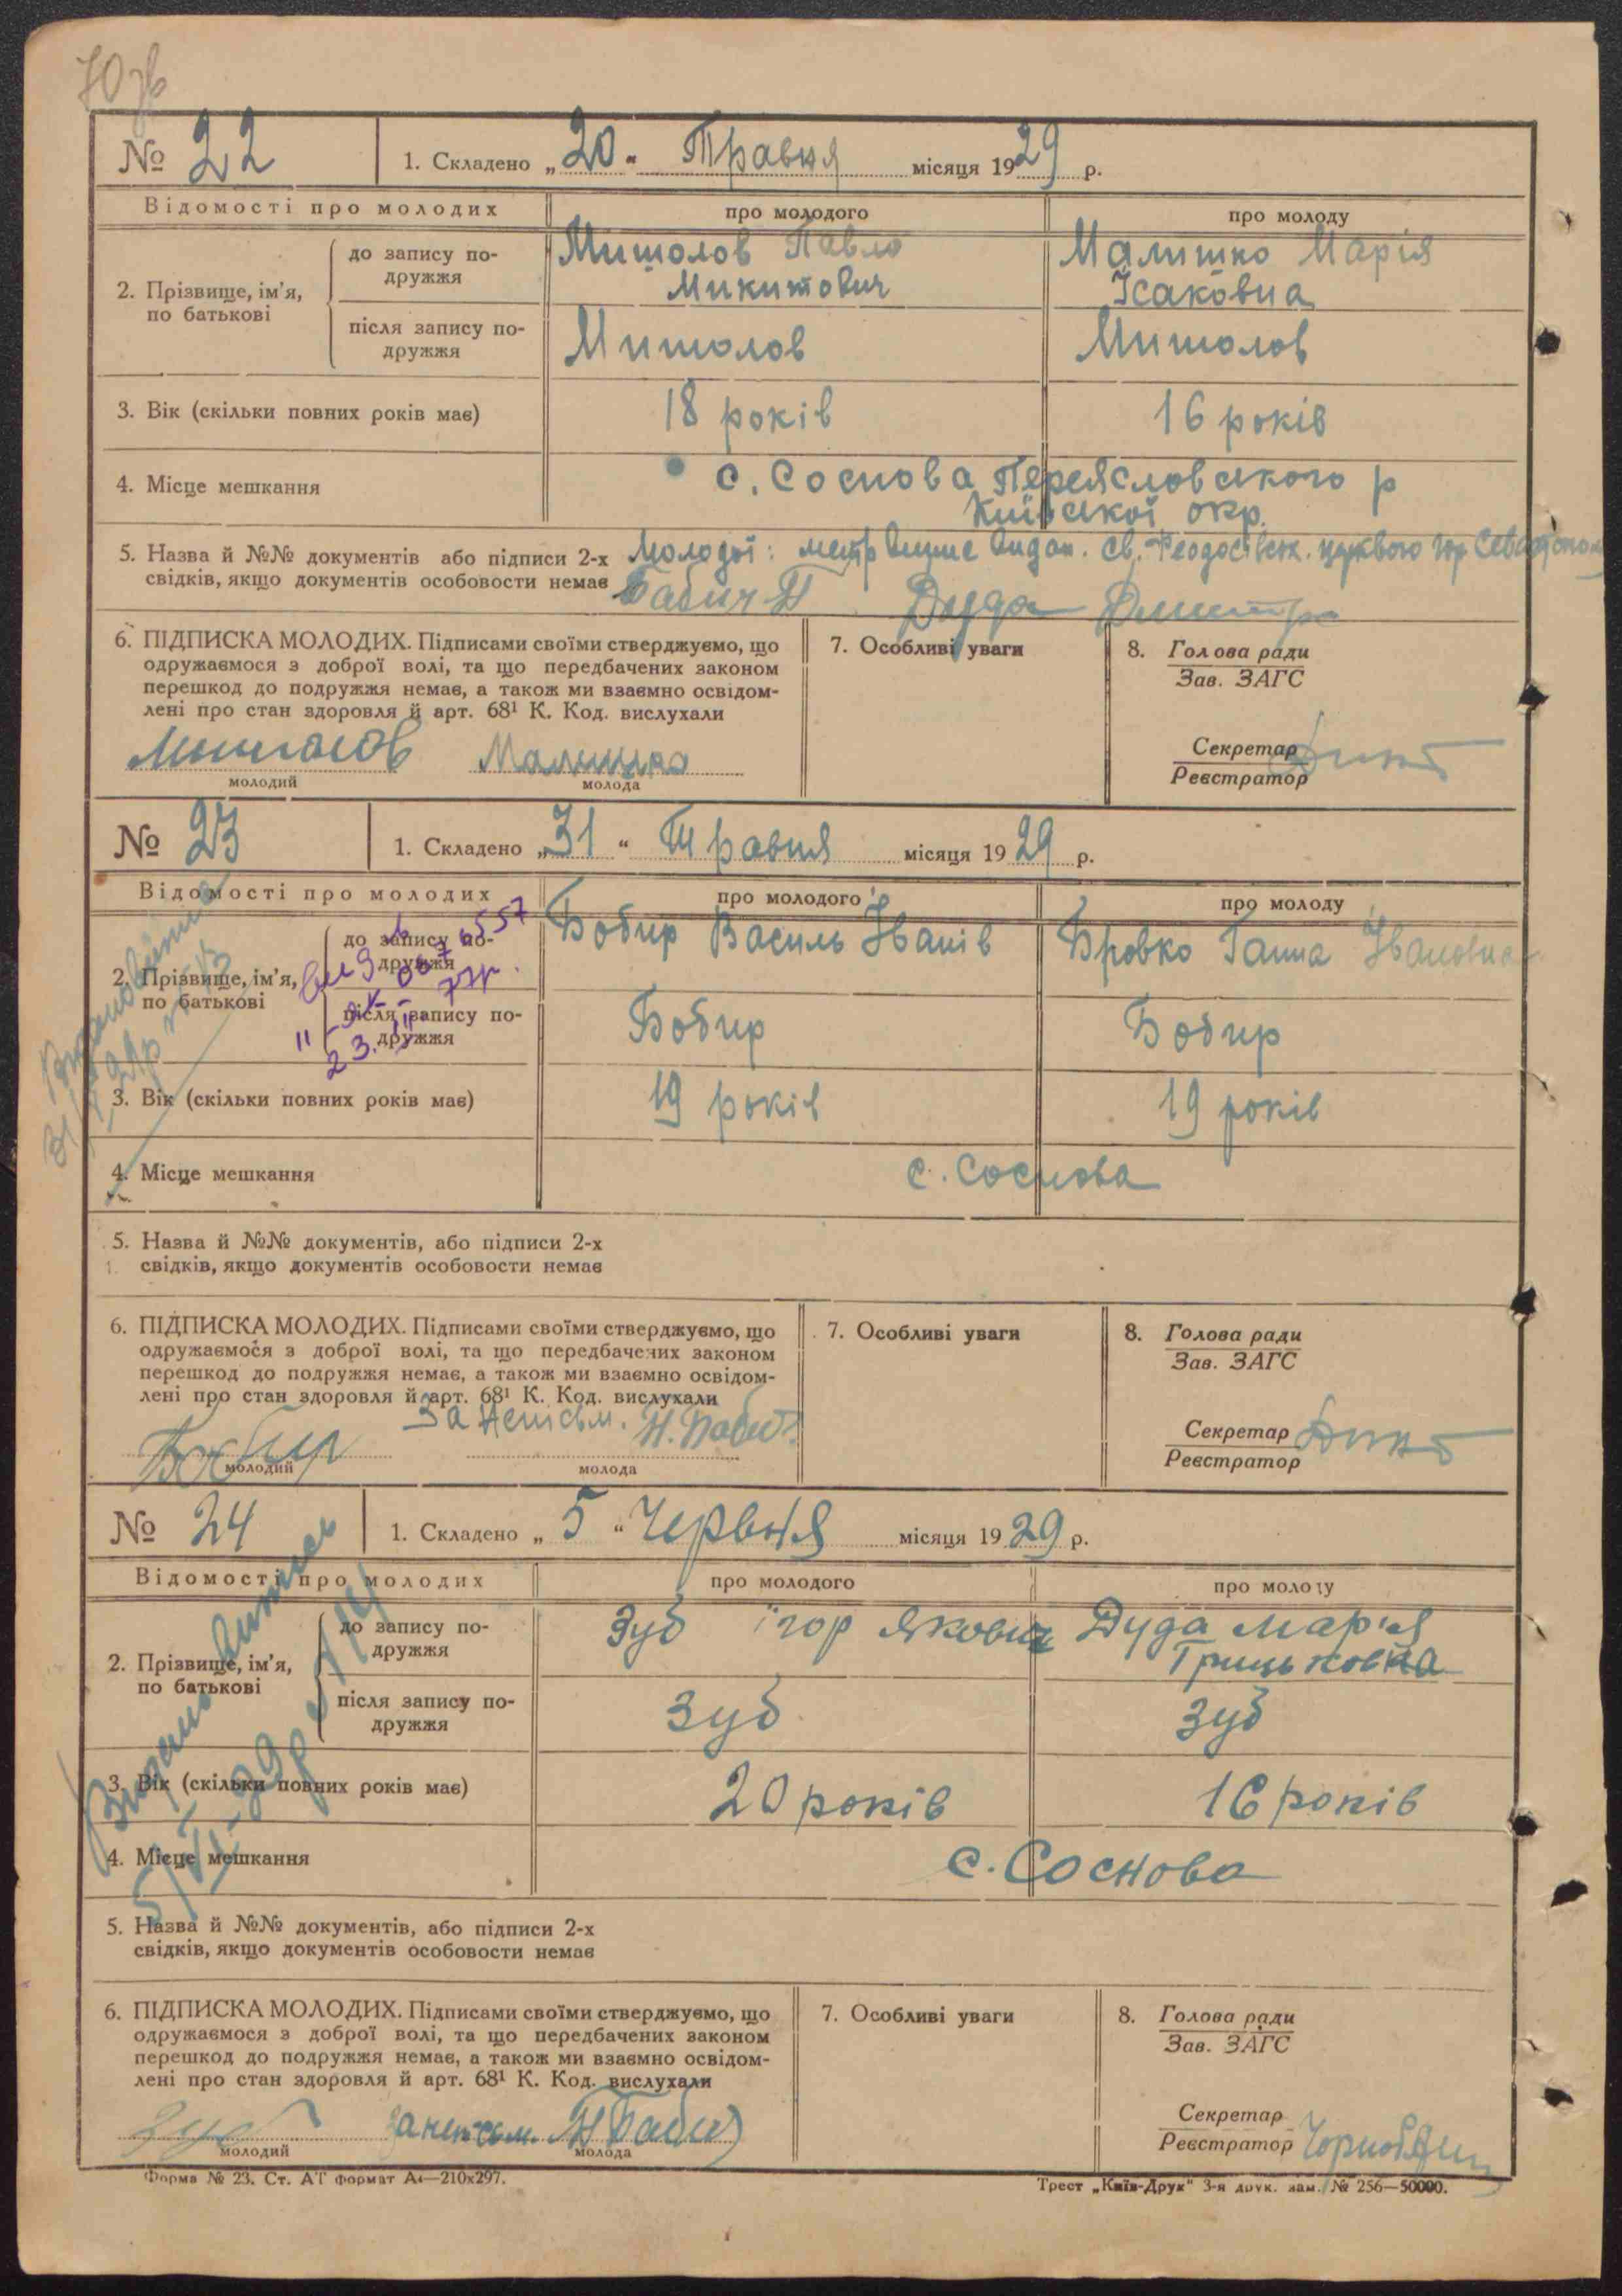 70 зв
№ 22 1. Складено „20“ Травня місяця 1929 р.
Відомості про молодих про молодого про молоду
2. Прізвище, ім’я, по батькові
до запису подружжя
Мишолов Павло Малишко Марія
Микитович Ісаковна
після запису по-
дружжя
Мишолов Мишолов
3. Вік (скільки повних років має) 18 років 16 років
4. Місце мешкання с. Соснова Переясловського р
Київської окр.
5. Назва й №№ документів або підписи 2-х Молодої: метр видан. Св. Феодосівськ. церквою гор
свідків, якщо документів особовости немає Бабич Дуда Дмитро
6. ПІДПИСКА МОЛОДИХ. Підписами своїми стверджуємо, що
одружаємося з доброї волі, та що передбачених законом
перешкод до подружжя немає, а також ми взаємно освідом-
лені про стан здоровля й арт. 68¹ К. Код. вислухали
Мишолов Малишко
молодий молода
7. Особливі уваги
8. Голова ради
Зав. ЗАГС
Секретар
Реєстратор
№ 23 1. Складено „31“ Травня місяця 1929 р.
Відомості про молодих про молодого про молоду
2. Прізвище, ім’я,
по батькові
до запису по-
дружжя
Бобир Василь Іванів Бровко Ганна Івановна
після запису по-
дружжя
Бобир Бобир
3. Вік (скільки повних років має) 19 років 19 років
4. Місце мешкання с. Соснова
5. Назва й №№ документів, або підписи 2-х
свідків, якщо документів особовости немає
6. ПІДПИСКА МОЛОДИХ. Підписами своїми стверджуємо, що
одружаємося з доброї волі, та що передбачених законом
перешкод до подружжя немає, а також ми взаємно освідом-
лені про стан здоровля й арт. 68¹ К. Код. вислухали
Бобир За неписьм. Н. Бабич
молодий молода
7. Особливі уваги
8. Голова ради
Зав. ЗАГС
Секретар
Реєстратор
№ 24 1. Складено „5“ Червня місяця 1929 р.
Відомості про молодих про молодого про молоду
2. Прізвище, ім’я,
по батькові
до запису по-
дружжя
Зуб Ігор Якович Дуда Марія
Грицьковна
після запису по-
дружжя
Зуб Зуб
3. Вік (скільки повних років має) 20 років 16 років
4. Місце мешкання с. Соснова
5. Назва й №№ документів, або підписи 2-х
свідків, якщо документів особовости немає
6. ПІДПИСКА МОЛОДИХ. Підписами своїми стверджуємо, що
одружаємося з доброї волі, та що передбачених законом
перешкод до подружжя немає, а також ми взаємно освідом-
лені про стан здоровля й арт. 68¹ К. Код. вислухали
Зуб За неписьм. Н Бабич
молодий молода
7. Особливі уваги
8. Голова ради
Зав. ЗАГС
Секретар
Реєстратор
Форма № 23. Ст. АТ формат А4—210x297.
Трест „Київ-Друк“ 3-я друк. зам. № 256—50000.